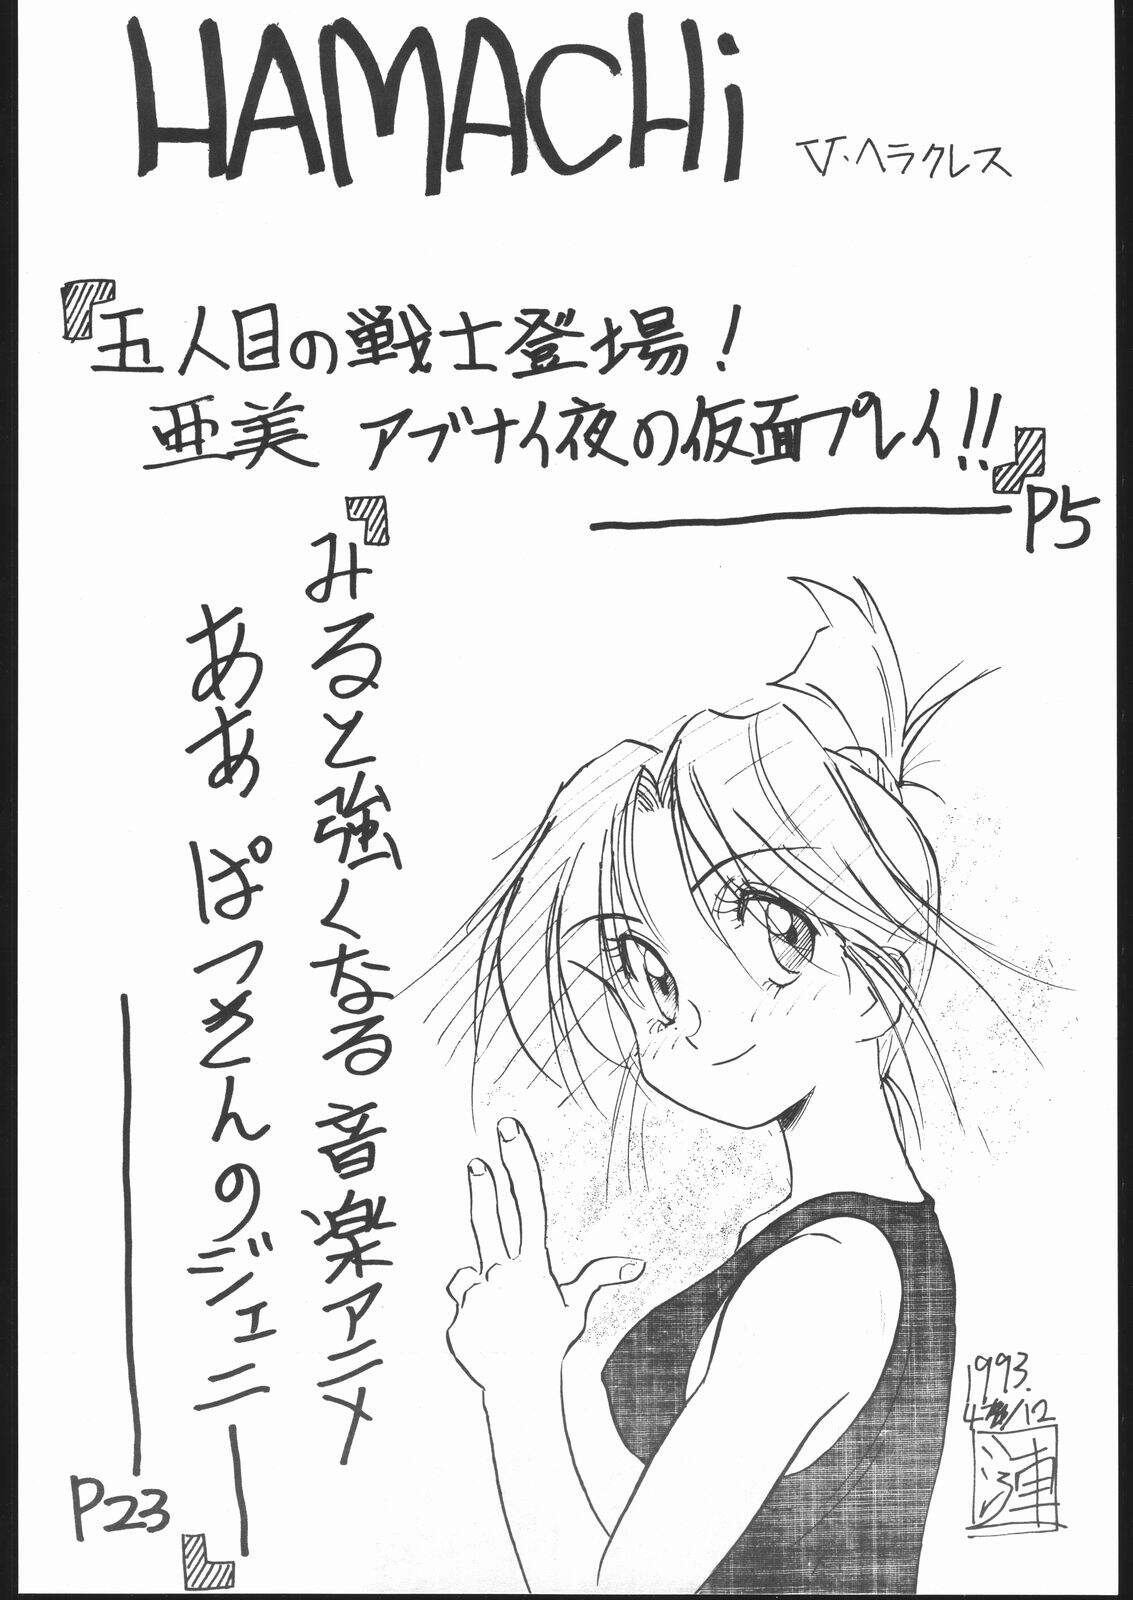 HAMACHi
V・ヘラクレス
『五人目の戦士登場！
亜美 アブナイ夜の仮面プレイ!!』
P5
『みると強くなる音楽アニメ
ああ ぱっきんのジェニー』
P23
1993.
漣